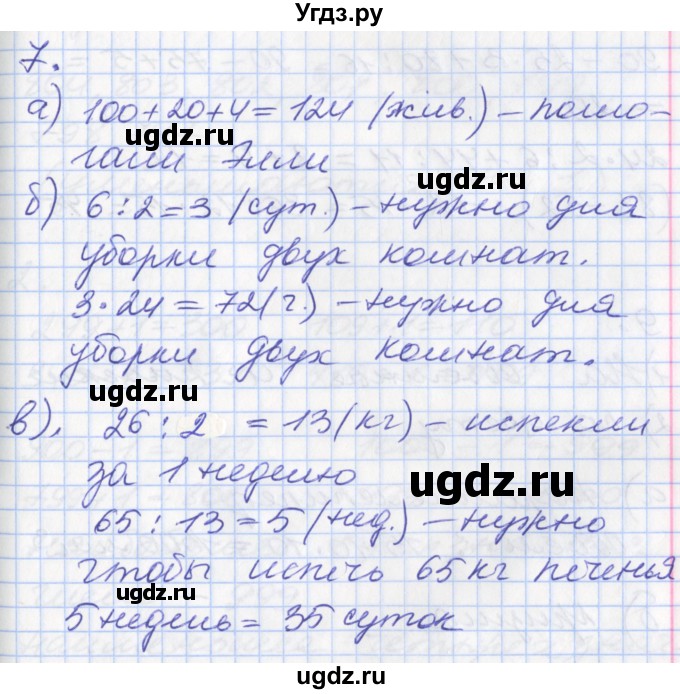 Угдз.ру
7.
а) 100+20+4=124 (жив.) – помо-
ugdz.ru
гали Элли
ugdz.ru
б) 6:2=3 (сут.) – нужно для
уборки двух комнат.
3·24=72(г.) – нужно для
уборки двух комнат.
ugdz.ru
в). 26:2 =13(кг) – испекли
за 1 неделю
ugdz.ru
65:13=5 (нед.) – нужно
чтобы испечь 65кг печенья
ugdz.ru
5 недель = 35 суток
ugdz.ru
ugdz.ru